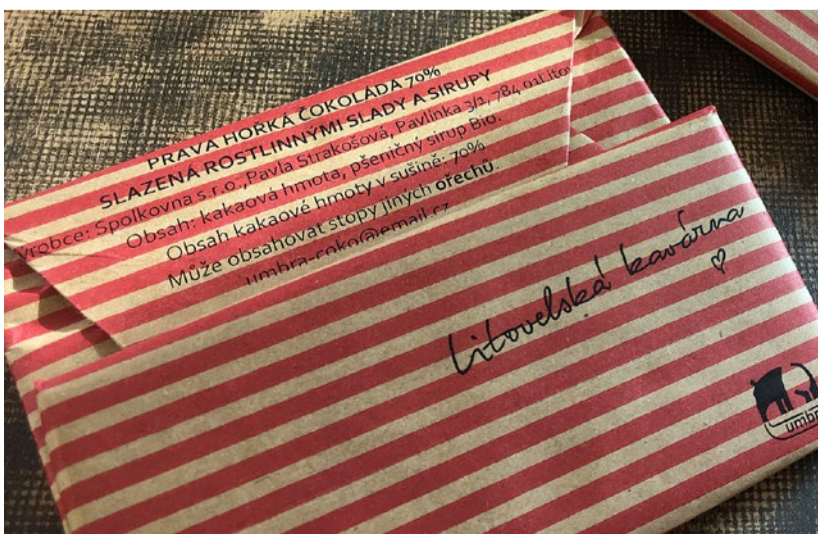 PRAVÁ HORKÁ ČOKOLÁDA 70%
SLAZENÁ ROSTLINNÝMI SLADY A SIRUPY
Výrobce: Spolkovna s r.o.,Pavla Strakošová, Pavlínka 3/1, 784 01Litov
Obsah: kakaová hmota, pšeničný sirup Bio.
Obsah kakaové hmoty v sušině: 70%
Může obsahovat stopy jiných ořechů.
umbra-coko@email.cz
Litovelská kavárna
umbr